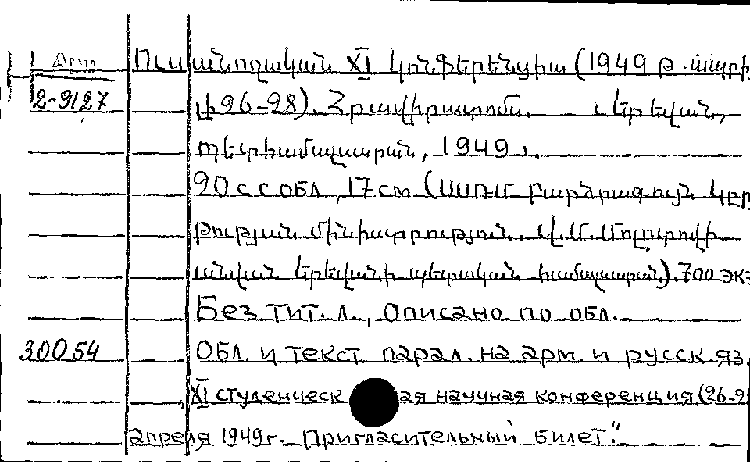 Арм Ուսանողական XI կոնֆերենցիա (1949 թ. ապրի
2-9127 լի 26-28). Հրավիրատոմս. Երեվան,
պետհամալսարան, 1949.
20 с с обл, 17 см (ՍՍՌՄ բարձրագույն կըր
թության մինիստրություն. Վ. Մ. Մոլոտովի
անվան Երեվանի պետական համալսարան). 700 экз
Без тит. л., Описано по обл.
30054 Обл. и текст парал. на арм. и русск. яз.
XI студенческ ая научная конференция (26-2
апреля 1949 г. Пригласительный билет."